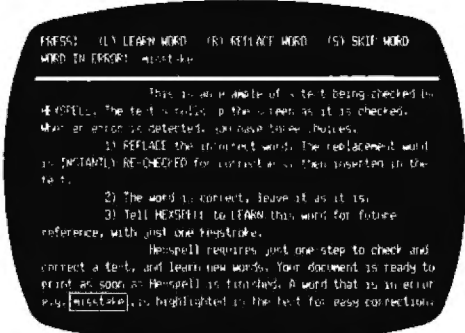 PRESS: (L) LEARN WORD (R) REPLACE WORD (S) SKIP WORD
WORD IN ERROR: misstake
This is an example of a text being checked by
HEXSPELL. The text scrolls up the screen as it is checked.
When an error is detected, you have three choices.
1) REPLACE the incorrect word. The replacement word
is INSTANTLY RE-CHECKED for correctness, then inserted in the
text.
2) The word is correct, leave it as it is.
3) Tell HEXSPELL to LEARN this word for future
reference, with just one keystroke.
Hexspell requires just one step to check and
correct a text, and learn new words. Your document is ready to
print as soon as Hexspell is finished. A word that is in error
e.g. misstake , is highlighted in the text for easy correction.